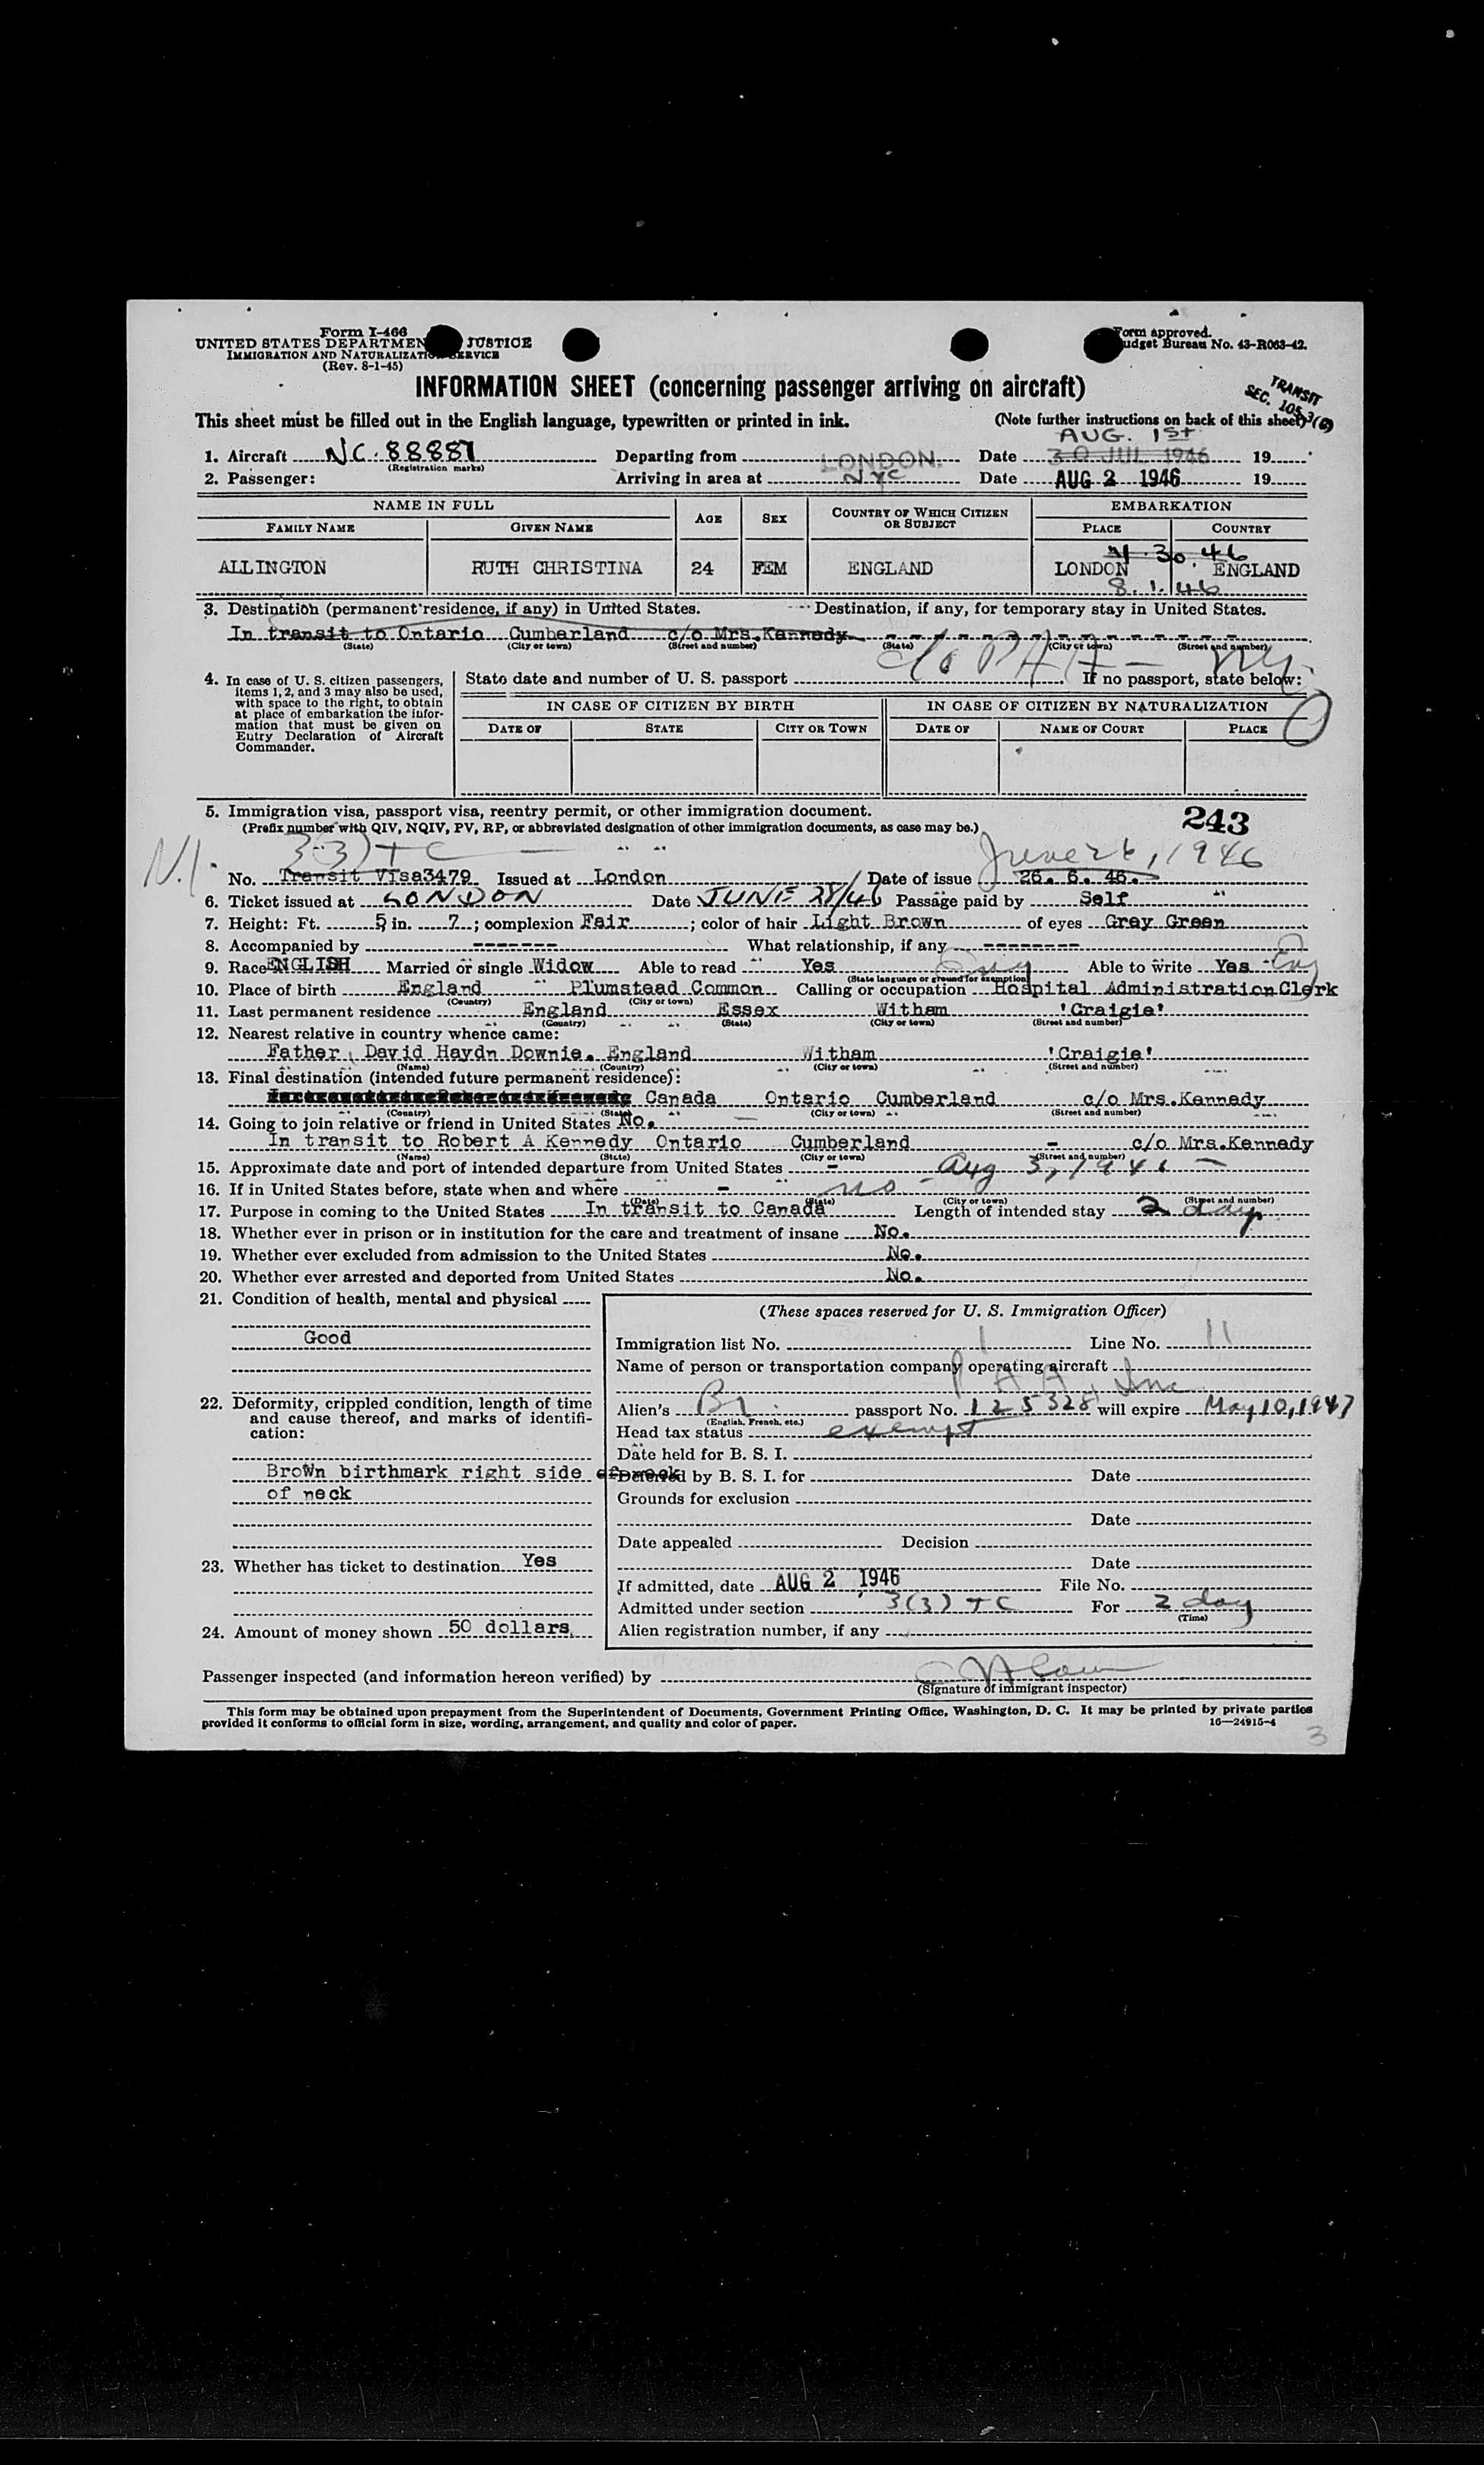 Form I-466
UNITED STATES DEPARTMENT JUSTICE
IMMIGRATION AND NATURALIZATION SERVICE
(Rev. 8-1-45)
Form approved.
Budget Bureau No. 43-R063-42.
INFORMATION SHEET (concerning passenger arriving on aircraft)
TRANSIT
SEC. 105.3(6)
This sheet must be filled out in the English language, typewritten or printed in ink. (Note further instructions on back of this sheet)
AUG. 1st
1. Aircraft NC.88881 Departing from LONDON. Date 30 JUL 1946 19
(Registration marks)
2. Passenger: Arriving in area at NYC Date AUG 2 1946 19
NAME IN FULL AGE SEX COUNTRY OF WHICH CITIZEN OR SUBJECT EMBARKATION
FAMILY NAME GIVEN NAME PLACE COUNTRY
30.46
ALLINGTON RUTH CHRISTINA 24 FEM ENGLAND LONDON ENGLAND
8.1.46
3. Destination (permanent residence, if any) in United States. Destination, if any, for temporary stay in United States.
In transit to Ontario Cumberland c/o Mrs.Kennedy
(State) (City or town) (Street and number) (State) (City or town) (Street and number)
c/o PAA - NY.
4. In case of U. S. citizen passengers, items 1, 2, and 3 may also be used, with space to the right, to obtain at place of embarkation the information that must be given on Entry Declaration of Aircraft Commander.
State date and number of U. S. passport If no passport, state below:
IN CASE OF CITIZEN BY BIRTH IN CASE OF CITIZEN BY NATURALIZATION
DATE OF STATE CITY OR TOWN DATE OF NAME OF COURT PLACE
5. Immigration visa, passport visa, reentry permit, or other immigration document. 243
(Prefix number with QIV, NQIV, PV, RP, or abbreviated designation of other immigration documents, as case may be.)
N.I. 3(3) TC June 26, 1946
No. Transit Visa3479 Issued at London Date of issue 26. 6. 46.
6. Ticket issued at LONDON Date JUNE 28/46 Passage paid by Self
7. Height: Ft. 5 in. 7 ; complexion Fair ; color of hair Light Brown of eyes Grey Green
8. Accompanied by ------- What relationship, if any --------
9. Race ENGLISH Married or single Widow Able to read Yes Eng Able to write Yes Eng
(State language or ground for exemption)
10. Place of birth England Plumstead Common Calling or occupation Hospital Administration Clerk
(Country) (City or town)
11. Last permanent residence England Essex Witham 'Craigie'
(Country) (State) (City or town) (Street and number)
12. Nearest relative in country whence came:
Father, David Haydn Downie. England Witham 'Craigie'
(Name) (Country) (City or town) (Street and number)
13. Final destination (intended future permanent residence):
Canada Ontario Cumberland c/o Mrs.Kennedy
(Country) (State) (City or town) (Street and number)
14. Going to join relative or friend in United States No.
In transit to Robert A Kennedy Ontario Cumberland - c/o Mrs.Kennedy
(Name) (State) (City or town) (Street and number)
15. Approximate date and port of intended departure from United States - Aug 3, 1946 -
16. If in United States before, state when and where - no -
(Date) (State) (City or town) (Street and number)
17. Purpose in coming to the United States In transit to Canada Length of intended stay 2 days
18. Whether ever in prison or in institution for the care and treatment of insane No.
19. Whether ever excluded from admission to the United States No.
20. Whether ever arrested and deported from United States No.
21. Condition of health, mental and physical
Good
22. Deformity, crippled condition, length of time and cause thereof, and marks of identification:
Brown birthmark right side of neck
of neck
23. Whether has ticket to destination Yes
24. Amount of money shown 50 dollars.
(These spaces reserved for U. S. Immigration Officer)
Immigration list No. 1 Line No. 11
Name of person or transportation company operating aircraft
P A A Inc
Alien's Br. passport No. 125328 will expire May 10, 1947
(English, French, etc.)
Head tax status exempt
Date held for B. S. I.
Deferred by B. S. I. for Date
Grounds for exclusion
Date
Date appealed Decision
Date
If admitted, date AUG 2 1946 File No.
Admitted under section 3(3) TC For 2 day
(Time)
Alien registration number, if any
Passenger inspected (and information hereon verified) by
(Signature of immigrant inspector)
This form may be obtained upon prepayment from the Superintendent of Documents, Government Printing Office, Washington, D. C. It may be printed by private parties
provided it conforms to official form in size, wording, arrangement, and quality and color of paper. 16—24915-4
3